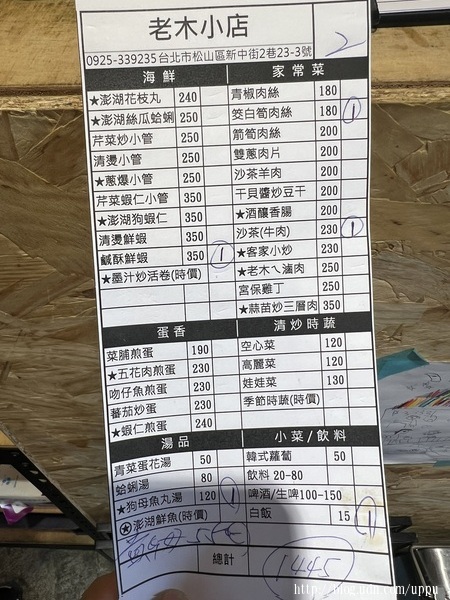 老木小店
2
0925-339235台北市松山區新中街2巷23-3號
海鮮
★澎湖花枝丸 240
★澎湖絲瓜蛤蜊 250
芹菜炒小管 250
清燙小管 250
★蔥爆小管 250
芹菜蝦仁小管 350
★澎湖狗蝦仁 350
清燙鮮蝦 350
鹹酥鮮蝦 350 1
★墨汁炒活卷(時價)
家常菜
青椒肉絲 180
筊白筍肉絲 180 1
箭筍肉絲 200
雙蔥肉片 200
沙茶羊肉 200
干貝醬炒豆干 200
★酒釀香腸 200
沙茶(牛肉) 230 1
★客家小炒 230
★老木ㄟ滷肉 250
宮保雞丁 250
★蒜苗炒三層肉 350
蛋香
菜脯煎蛋 190
★五花肉煎蛋 230
吻仔魚煎蛋 230
蕃茄炒蛋 230
★蝦仁煎蛋 240
清炒時蔬
空心菜 120
高麗菜 120
娃娃菜 130
季節時蔬(時價)
湯品
青菜蛋花湯 50
蛤蜊湯 80
★狗母魚丸湯 120 1
✪澎湖鮮魚(時價)
小菜/飲料
韓式蘿蔔 50
飲料 20-80
啤酒/生啤100-150
白飯 15 1
總計
1445
http://blog.udn.com/uppu